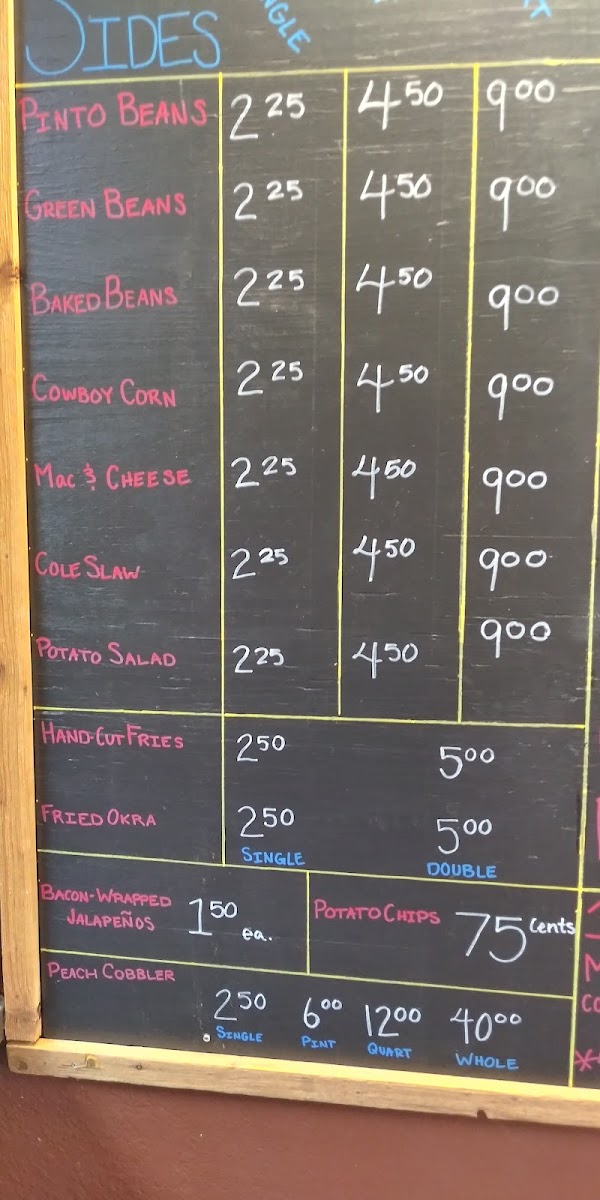 SIDES
PINTO BEANS 2 25 4 50 9 00
GREEN BEANS 2 25 4 50 9 00
BAKED BEANS 2 25 4 50 9 00
COWBOY CORN 2 25 4 50 9 00
MAC & CHEESE 2 25 4 50 9 00
COLE SLAW 2 25 4 50 9 00
POTATO SALAD 2 25 4 50 9 00
HAND-CUT FRIES 2 50 5 00
FRIED OKRA 2 50 5 00
SINGLE DOUBLE
BACON-WRAPPED
JALAPEÑOS 1 50 ea.
POTATO CHIPS 75 Cents
PEACH COBBLER
2 50 6 00 12 00 40 00
SINGLE PINT QUART WHOLE